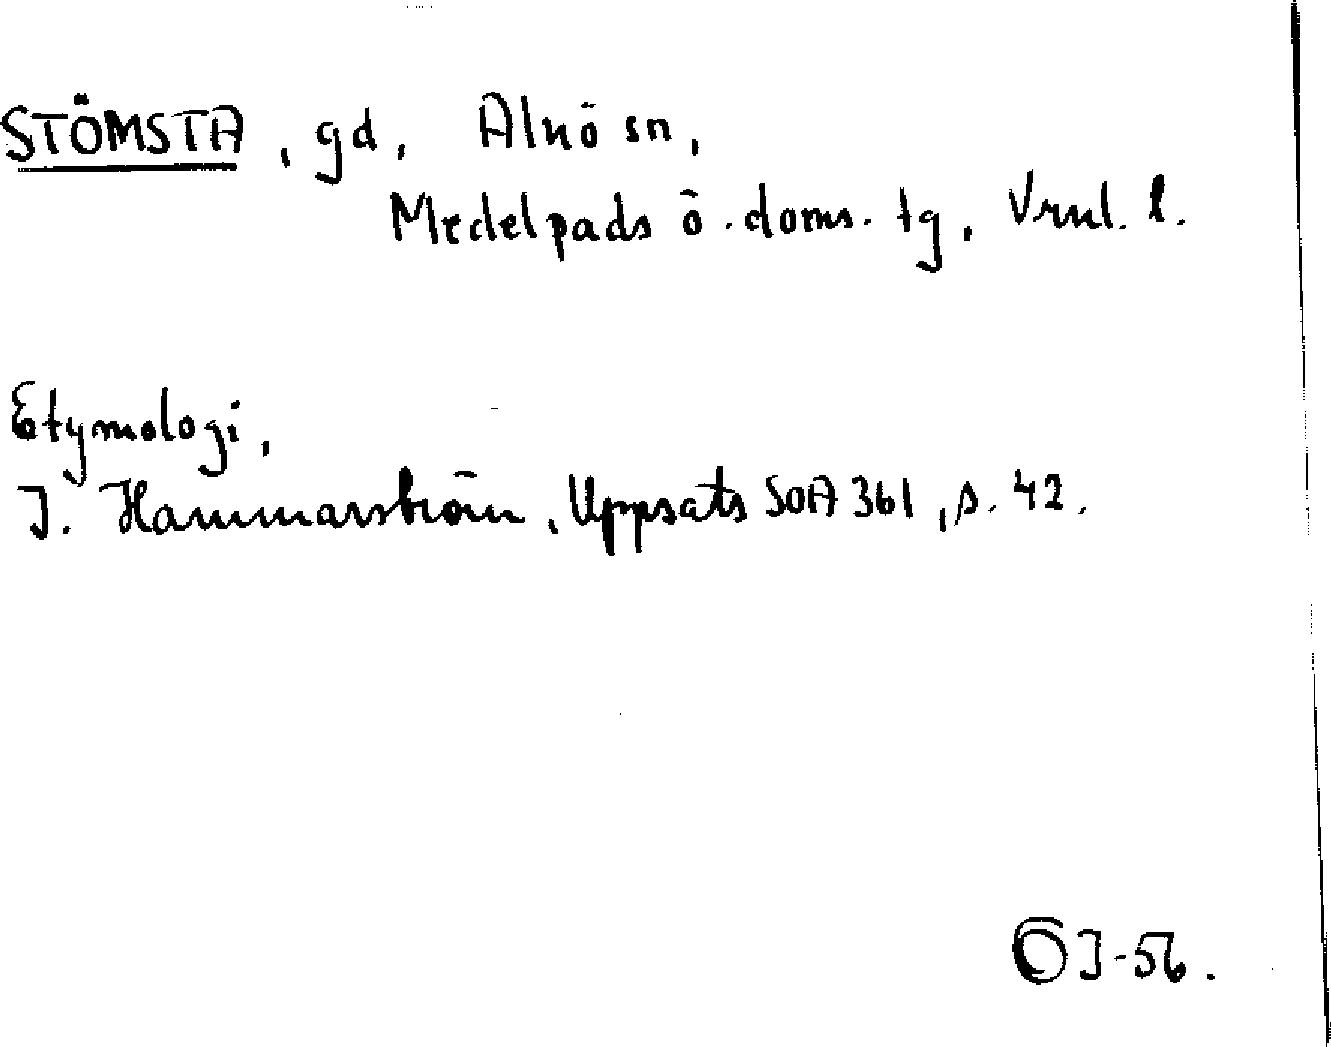 STÖMSTA, gd, Alnö sn,
Medelpads ö. doms. tg, Vrnl. l.
Etymologi,
I. Hammarström, Uppsats SOA 361, s. 42.
ÖJ-56.